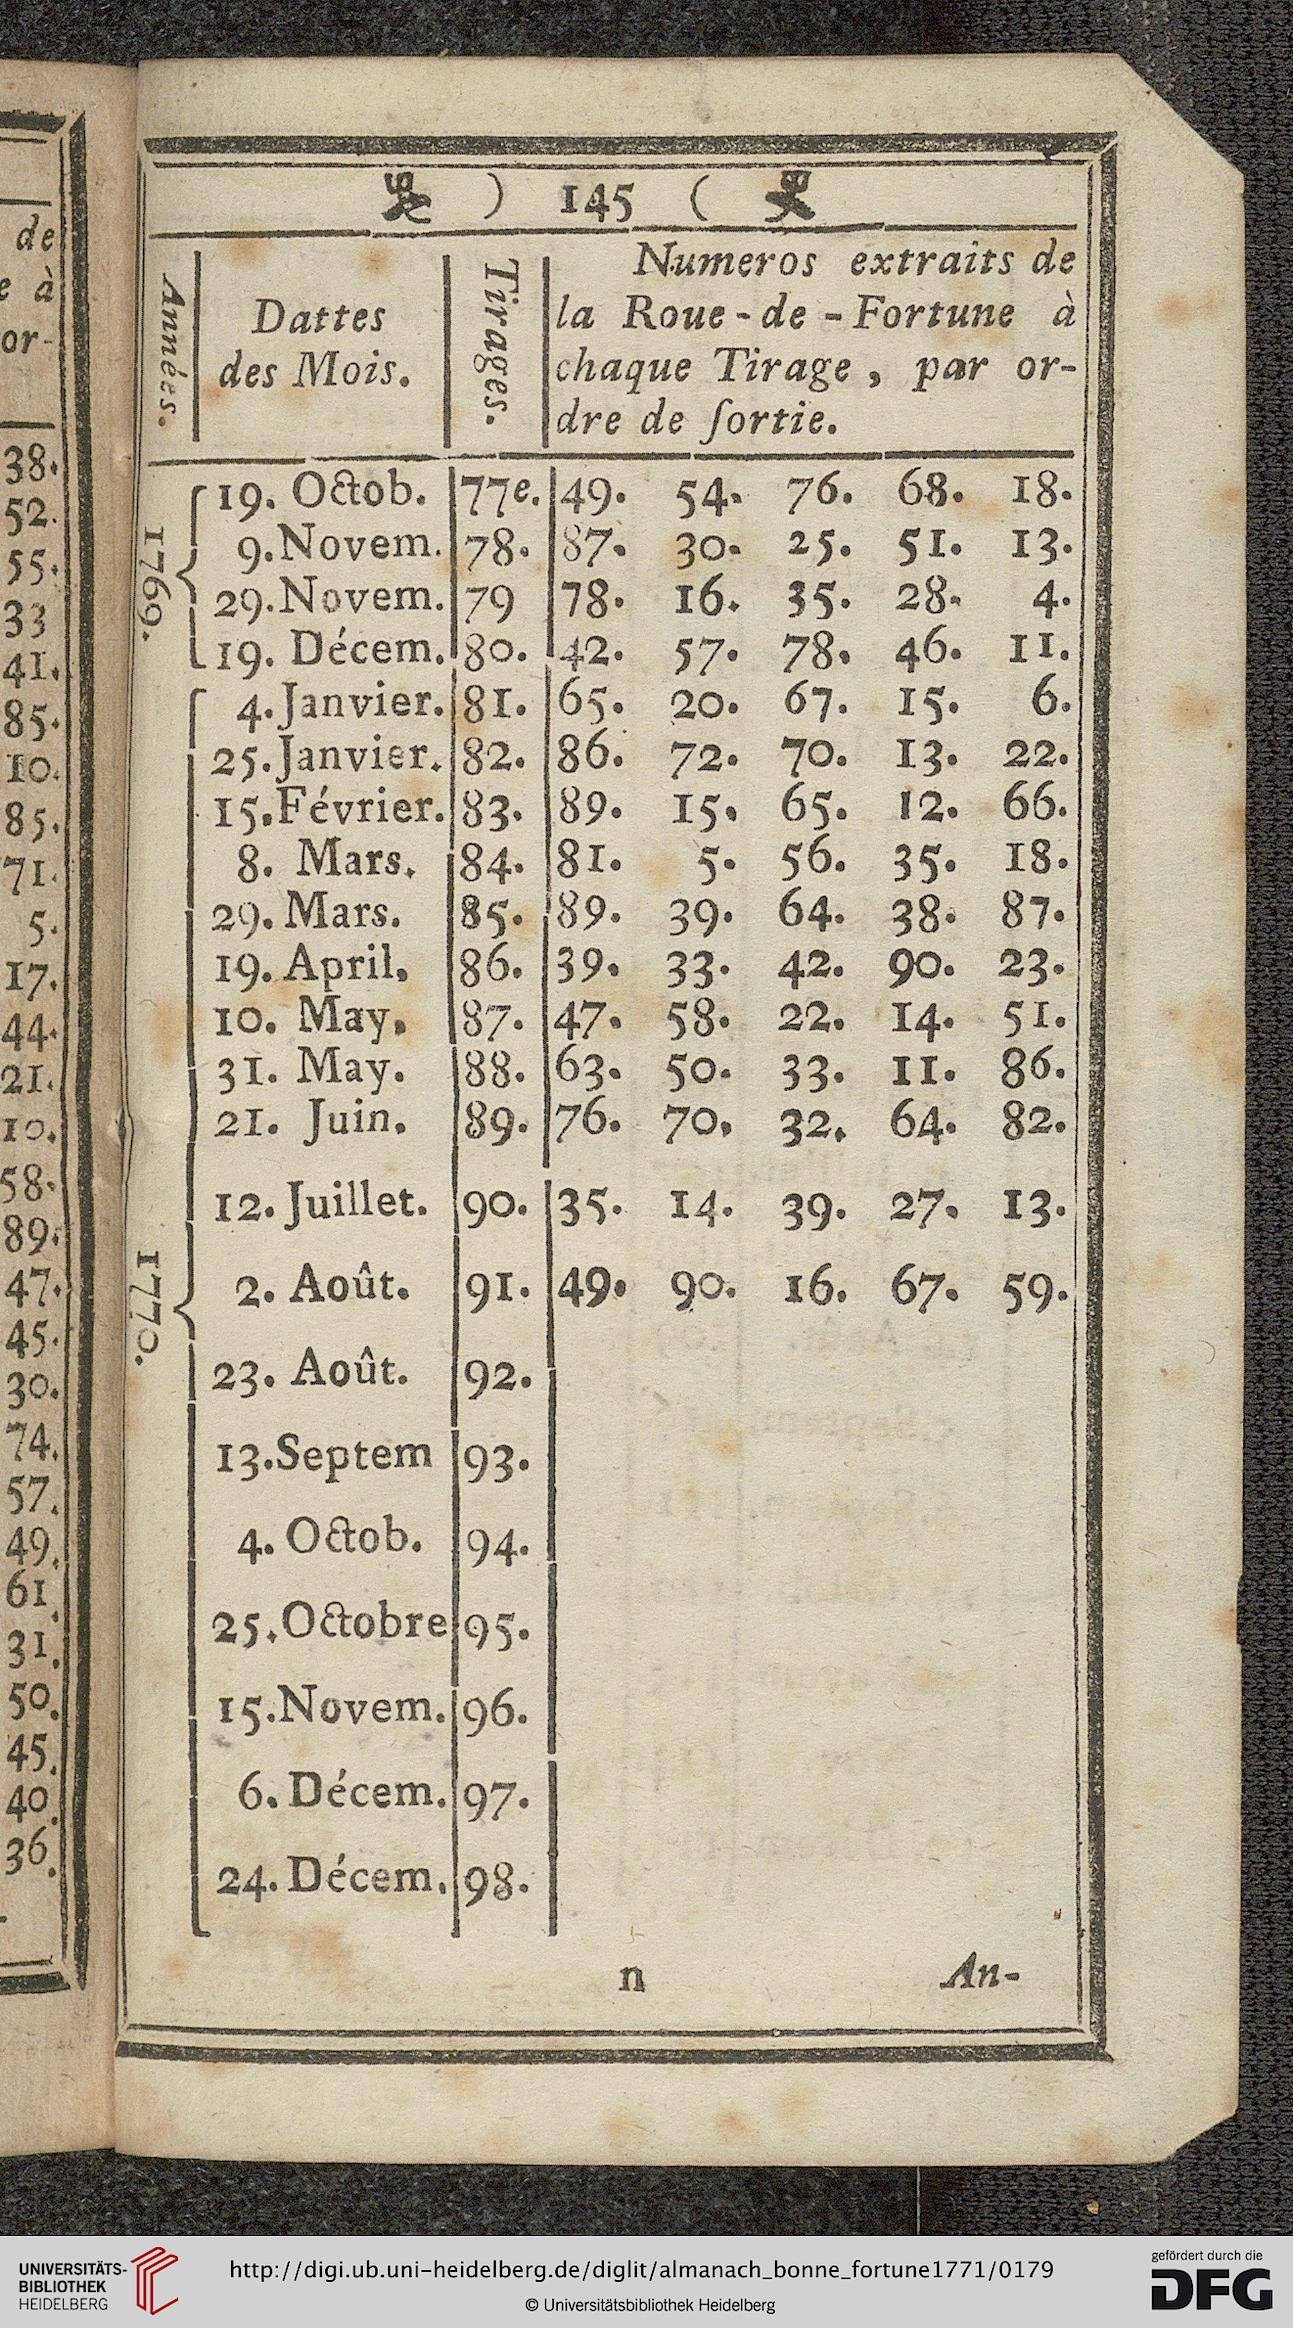 ) 145 (
Années.
Dattes
des Mois.
Tirages.
Numeros extraits de
la Roue-de-Fortune à
chaque Tirage, par or-
dre de ſortie.
1769.
19. Octob. 77e. 49. 54. 76. 68. 18.
9. Novem. 78. 87. 30. 25. 51. 13.
29. Novem. 79 78. 16. 35. 28. 4.
19. Décem. 80. 42. 57. 78. 46. 11.
1770.
4. Janvier. 81. 65. 20. 67. 15. 6.
25. Janvier. 82. 86. 72. 70. 13. 22.
15. Février. 83. 89. 15. 65. 12. 66.
8. Mars. 84. 81. 5. 56. 35. 18.
29. Mars. 85. 89. 39. 64. 38. 87.
19. April. 86. 39. 33. 42. 90. 23.
10. May. 87. 47. 58. 22. 14. 51.
31. May. 88. 63. 50. 33. 11. 86.
21. Juin. 89. 76. 70. 32. 64. 82.
12. Juillet. 90. 35. 14. 39. 27. 13.
2. Août. 91. 49. 90. 16. 67. 59.
23. Août. 92.
13. Septem 93.
4. Octob. 94.
25. Octobre 95.
15. Novem. 96.
6. Décem. 97.
24. Décem. 98.
n An-
de
e à
or-
38.
52.
55.
33
41.
85.
10.
85.
71.
5.
17.
44.
21.
10.
58.
89.
47.
45.
30.
74.
57.
49.
61
31.
50.
45.
40.
36.
UNIVERSITÄTS-
BIBLIOTHEK
HEIDELBERG
http://digi.ub.uni-heidelberg.de/diglit/almanach_bonne_fortune1771/0179
© Universitätsbibliothek Heidelberg
gefördert durch die
DFG